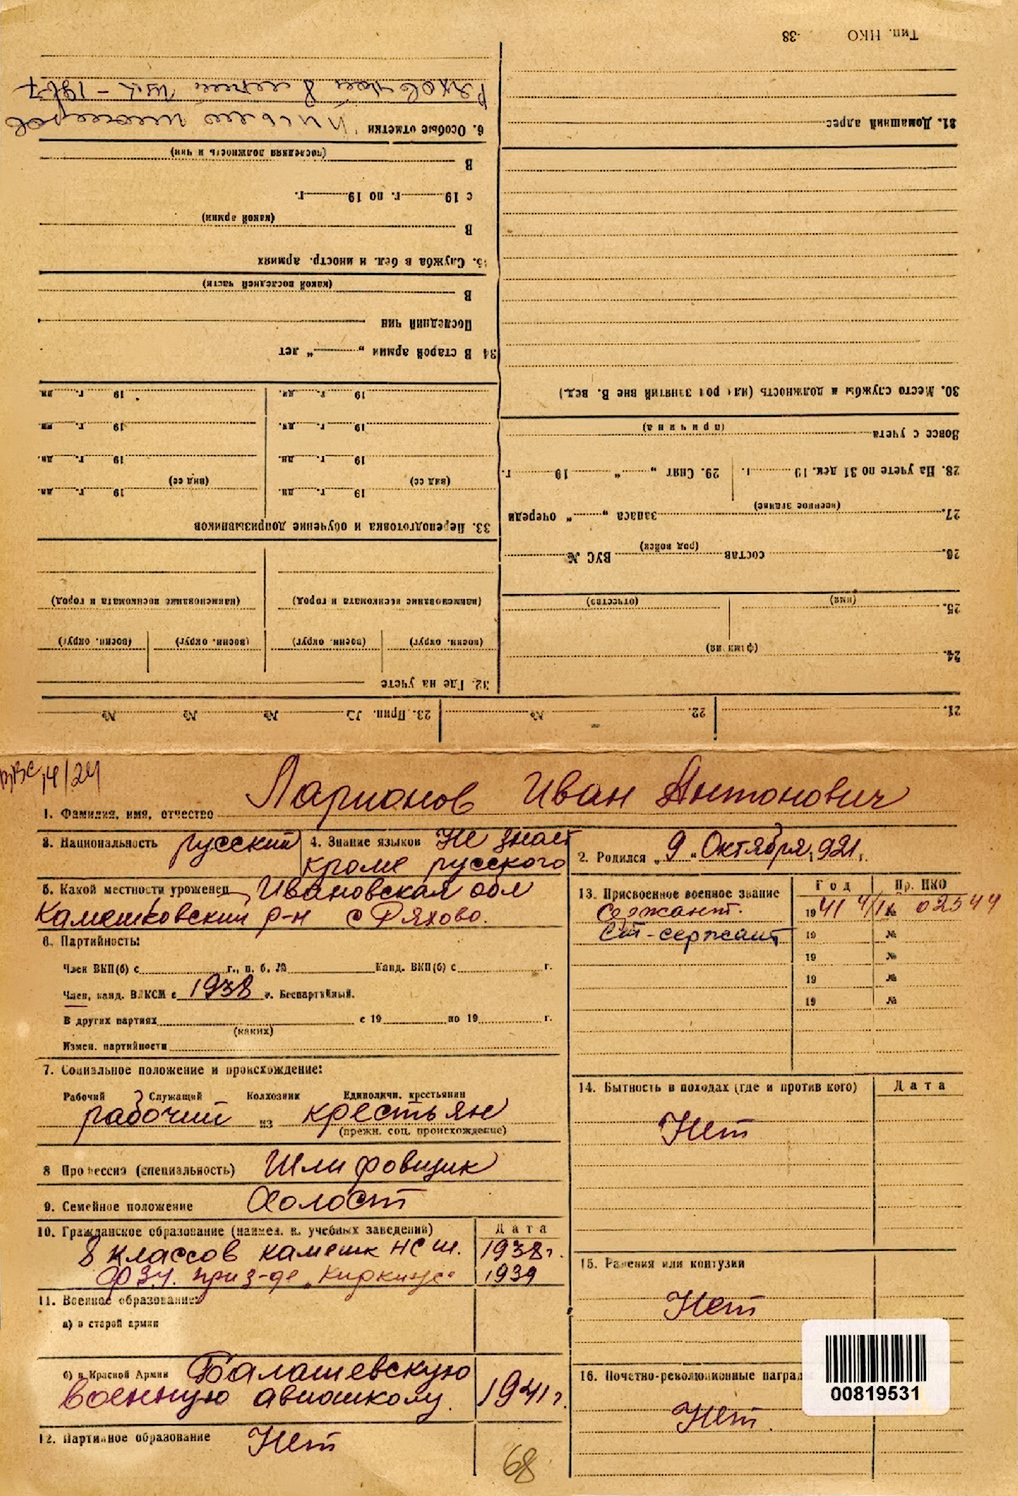 Тип. НКО 38
31. Домашний адрес
30. Место службы и должность (или род занятий вне В. вед.)
Вовсе с учета
(причина)
28. На учете по 31 дек. 19 г. 29. Снят „ “ 19 г.
27. запаса „ “ очереди
(военное звание)
26. состав ВУС №
(род войск)
25.
(имя) (отчество)
24.
(фамилия)
21. 22. № 23. Прип. № № № №
6. Особые отметки "Письмо пионеров
Ряховской 8 летней шк - 1967
(последняя должность и чин)
В
с 19 г. по 19 г.
В
(какой армии)
35. Служба в бел. и иностр. армиях
(какой последней части)
В
Последний чин
34 В старой армии „ “ лет
19 г. дн. 19 г. дн.
19 г. дн. 19 г. дн.
19 г. дн. 19 г. дн.
19 г. дн. 19 г. дн.
(вид сб) (вид сб)
33. Переподготовка и обучение допризывников
(наименование военкомата и город) (наименование военкомата и город)
(воен. округ) (воен. округ) (воен. округ) (воен. округ)
32. Где на учете
ВВС 14/24
1. Фамилия, имя, отчество Ларионов Иван Антонович
3. Национальность русский 4. Знание языков Не знает
кроме русского
2. Родился „9„ Октября 1921г.
5. Какой местности уроженец Ивановская обл
Камешковский р-н с Ряхово.
6. Партийность:
Член ВКП(б) с г., п. б. № Канд. ВКП(б) с г.
Член, канд. ВЛКСМ с 1938 г. Беспартийный.
В других партиях с 19 по 19 г.
(каких)
Измен. партийности
7. Социальное положение и происхождение:
Рабочий Служащий Колхозник Единоличн. крестьянин
рабочий из крестьян
(прежн. соц. происхождение)
8 Профессия (специальность) Шлифовщик
9. Семейное положение Холост
10. Гражданское образование (наимен. в. учебных заведений) Дата
8 классов камешк НСш. 1938г.
ФЗУ. при з-де „Киркиж" 1939
11. Военное образование:
а) в старой армии
б) в Красной Армии Балашевскую
военную авиошколу. 1941г.
12. Партийное образование Нет
68
13. Присвоенное военное звание Год Пр. НКО
Сержант. 1941 4/IX № 02544
Ст-сержант 19 №
19 №
19 №
19 №
14. Бытность в походах (где и против кого) Дата
Нет
15. Ранения или контузии
Нет
16. Почетно-революционные наград
Нет
00819531